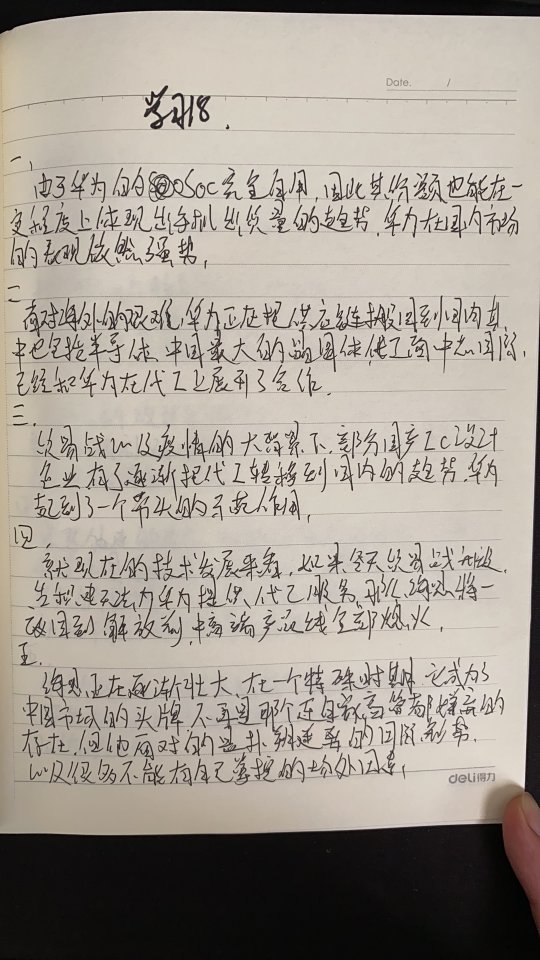 Date. /
学习18.
一、
由于华为的SoC完全自用,因此其份额也能在一
定程度上体现出手机出货量的趋势,华为在国内市场
的表现依然强势。
二
面对海外的艰难,华为正在把供应链搬回到国内,其
中也包括半导体,中国最大的晶圆体代工商中芯国际,
已经和华为在代工上展开了合作。
三.
贸易战以及疫情的大背景下,部分国产IC设计
企业有了逐渐把代工转移到国内的趋势,华为
起到了一个带头的示范作用。
四.
就现在的技术发展来看,如果贸易战升级,
台积电无法为华为提供代工服务,那么海思将一
夜回到解放前,中高端产品线全部熄火。
五.
海思正在逐渐壮大,在一个特殊时期,它成为了
中国市场的头牌,不再是那个连自家高管都嫌弃的
存在,但他面对的是扑朔迷离的国际形势,
以及很多不能由自己掌控的场外因素。
deli得力